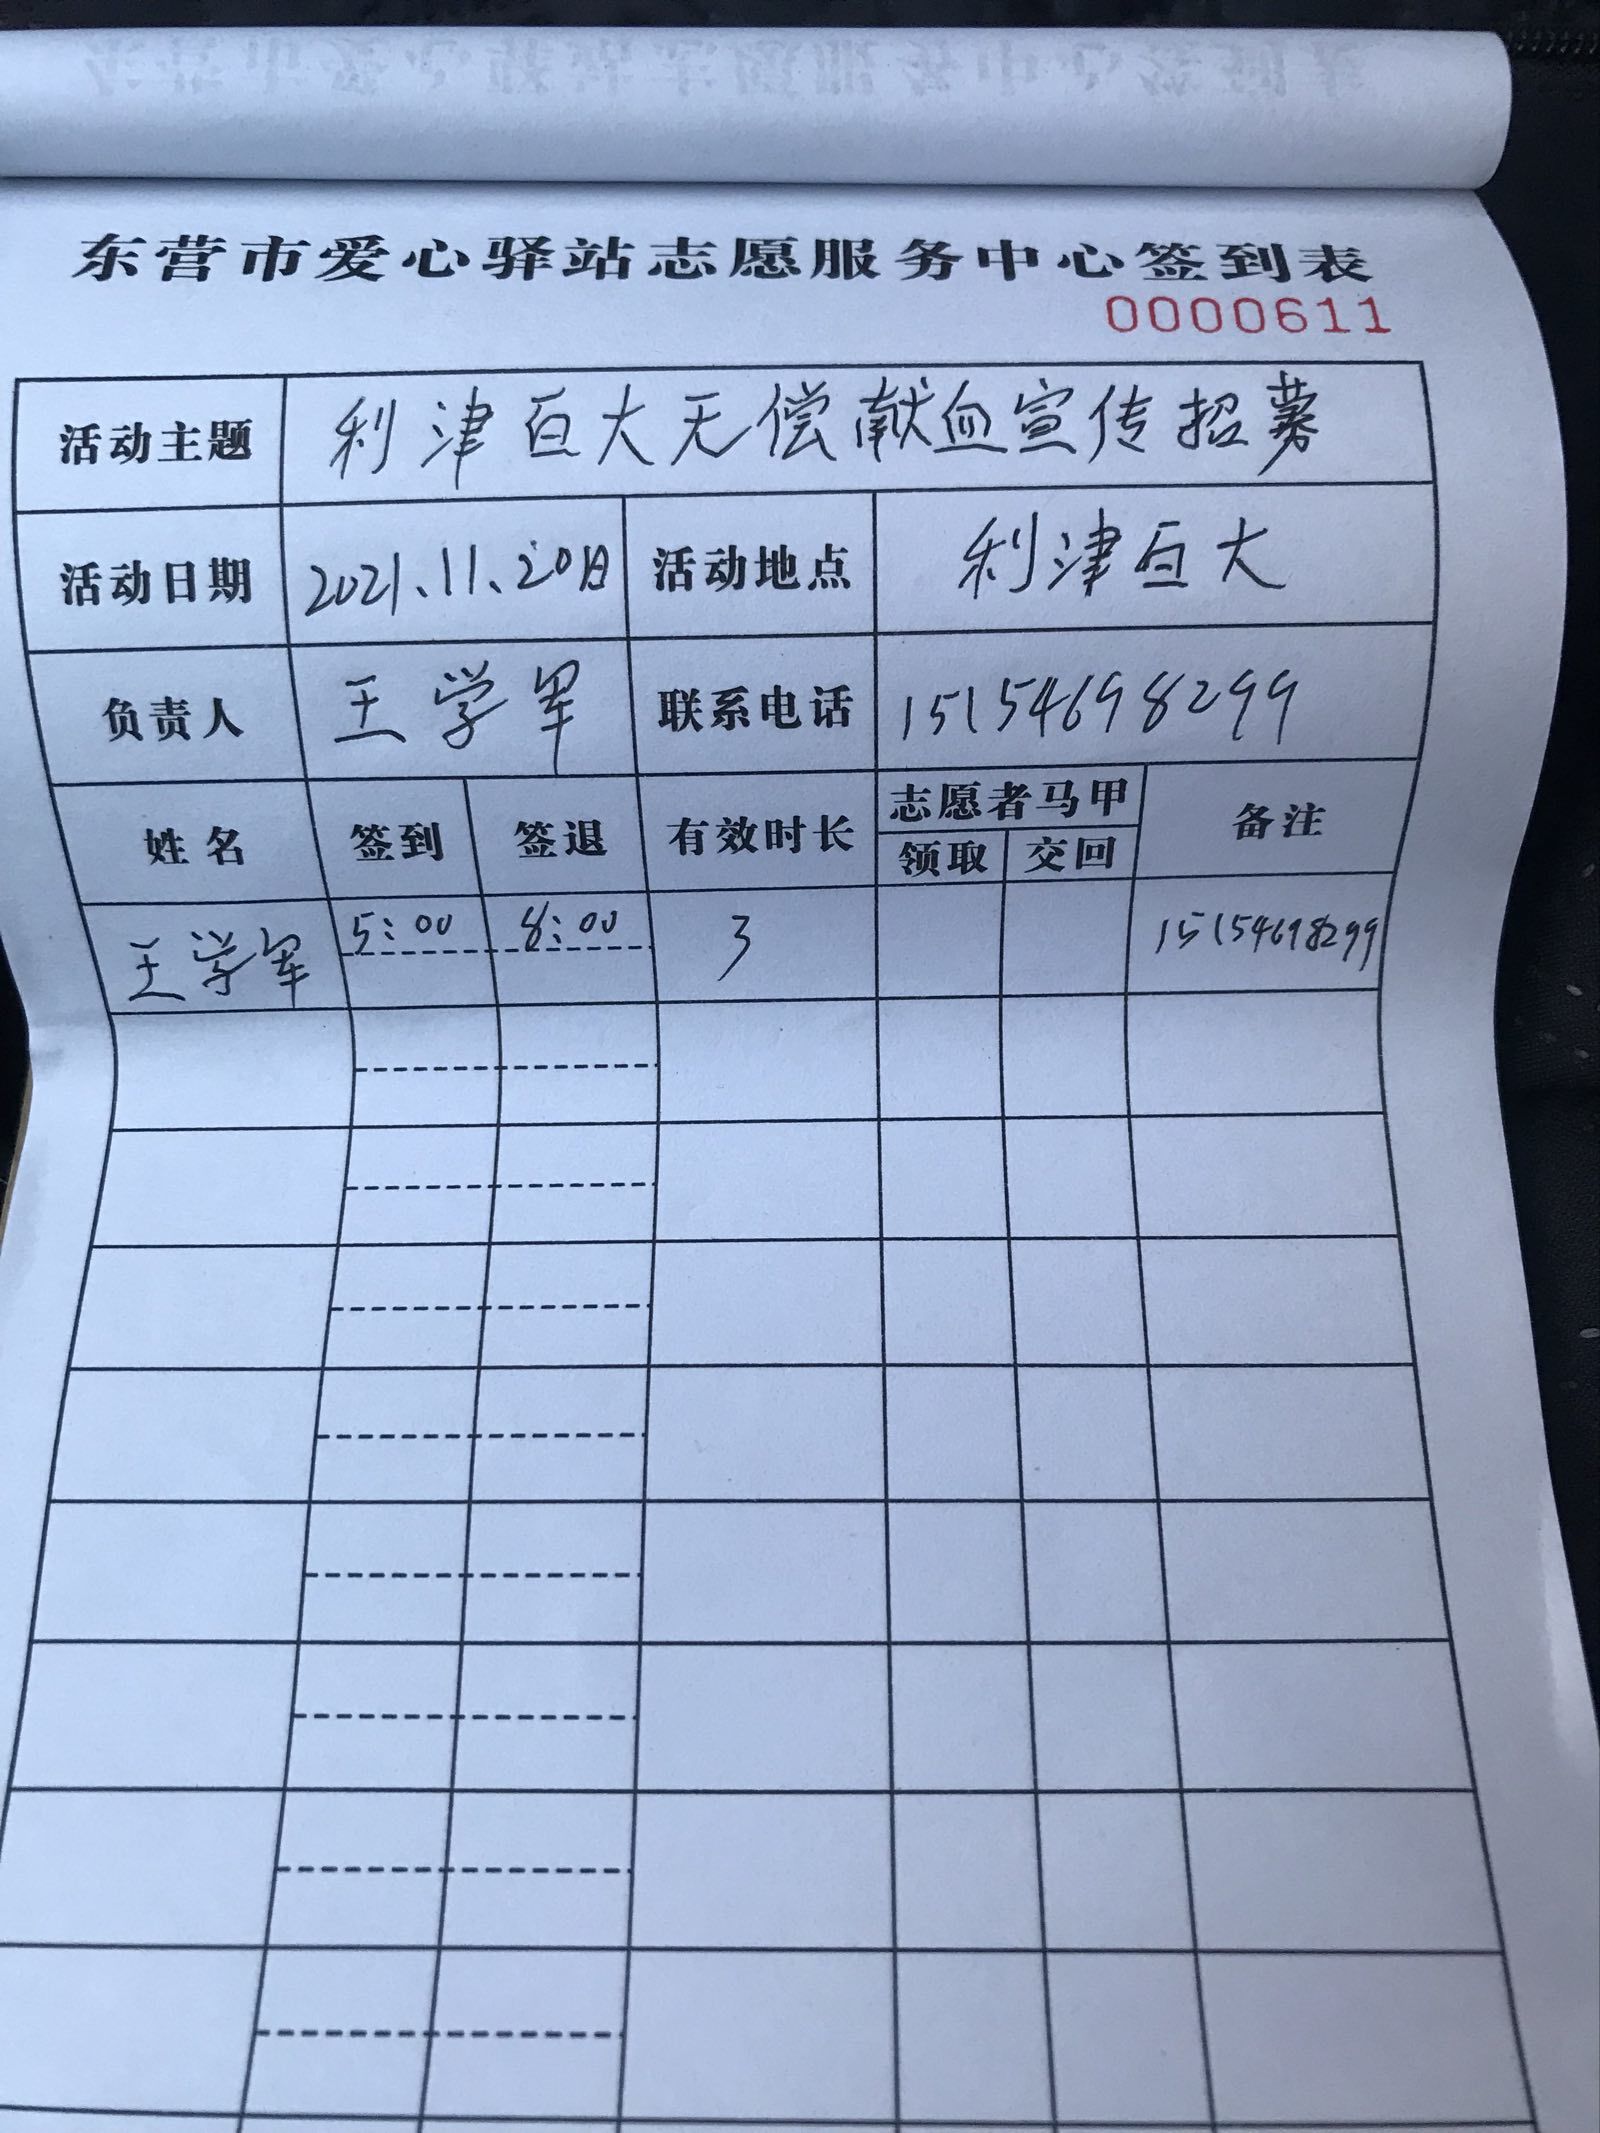 东营市爱心驿站志愿服务中心签到表
0000611
活动主题 利津百大无偿献血宣传招募
活动日期 2021、11、20日 活动地点 利津百大
负责人 王学军 联系电话 15154698299
姓名 签到 签退 有效时长 志愿者马甲 备注
领取 交回
王学军 5:00 8:00 3 15154698299